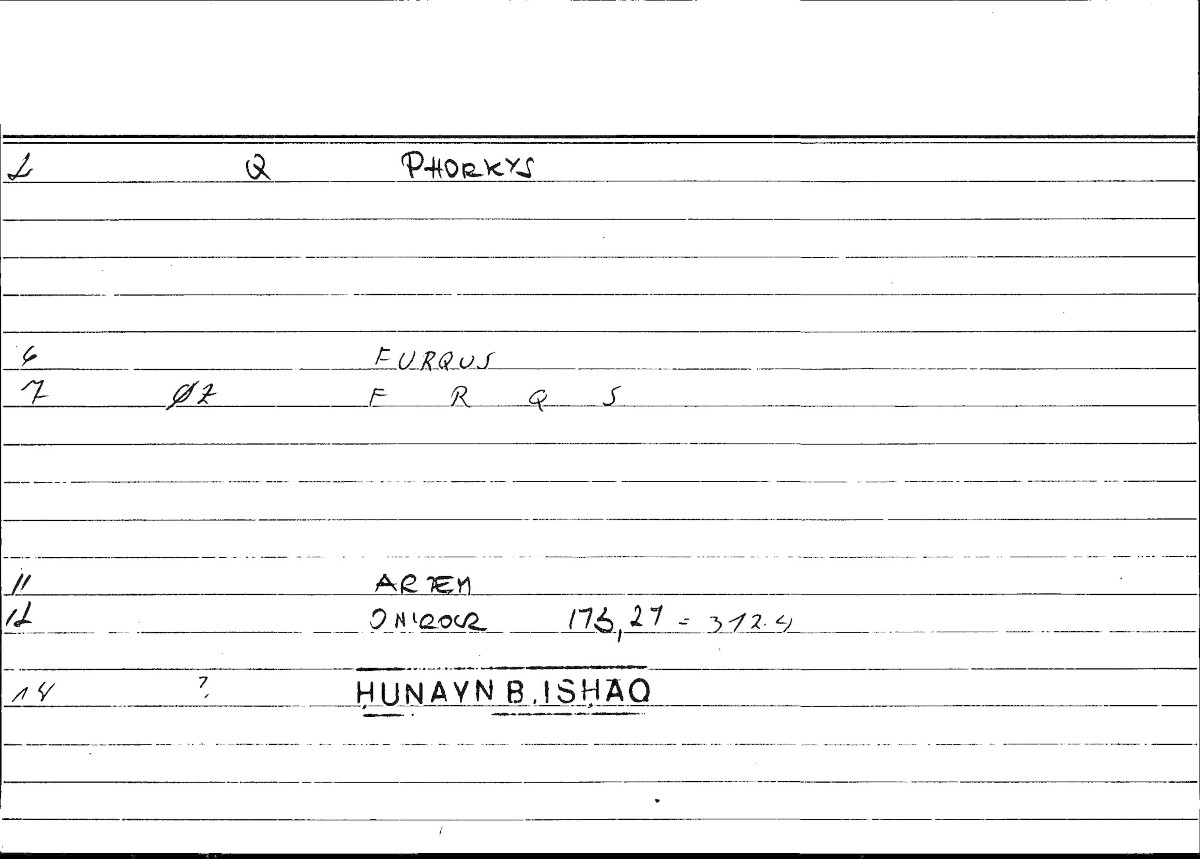 2 Q PHORKYS
6 FURQUS
7 ØZ F R Q S
11 ARTEM
12 ONIROCR 173,27 = 312.4
14 ? ḤUNAYN B. ISḤĀQ